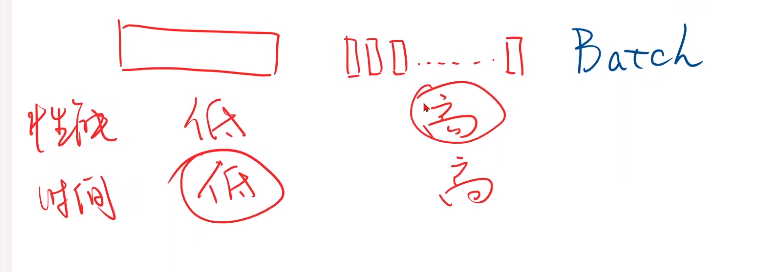 Batch
性能 低 高
时间 低 高